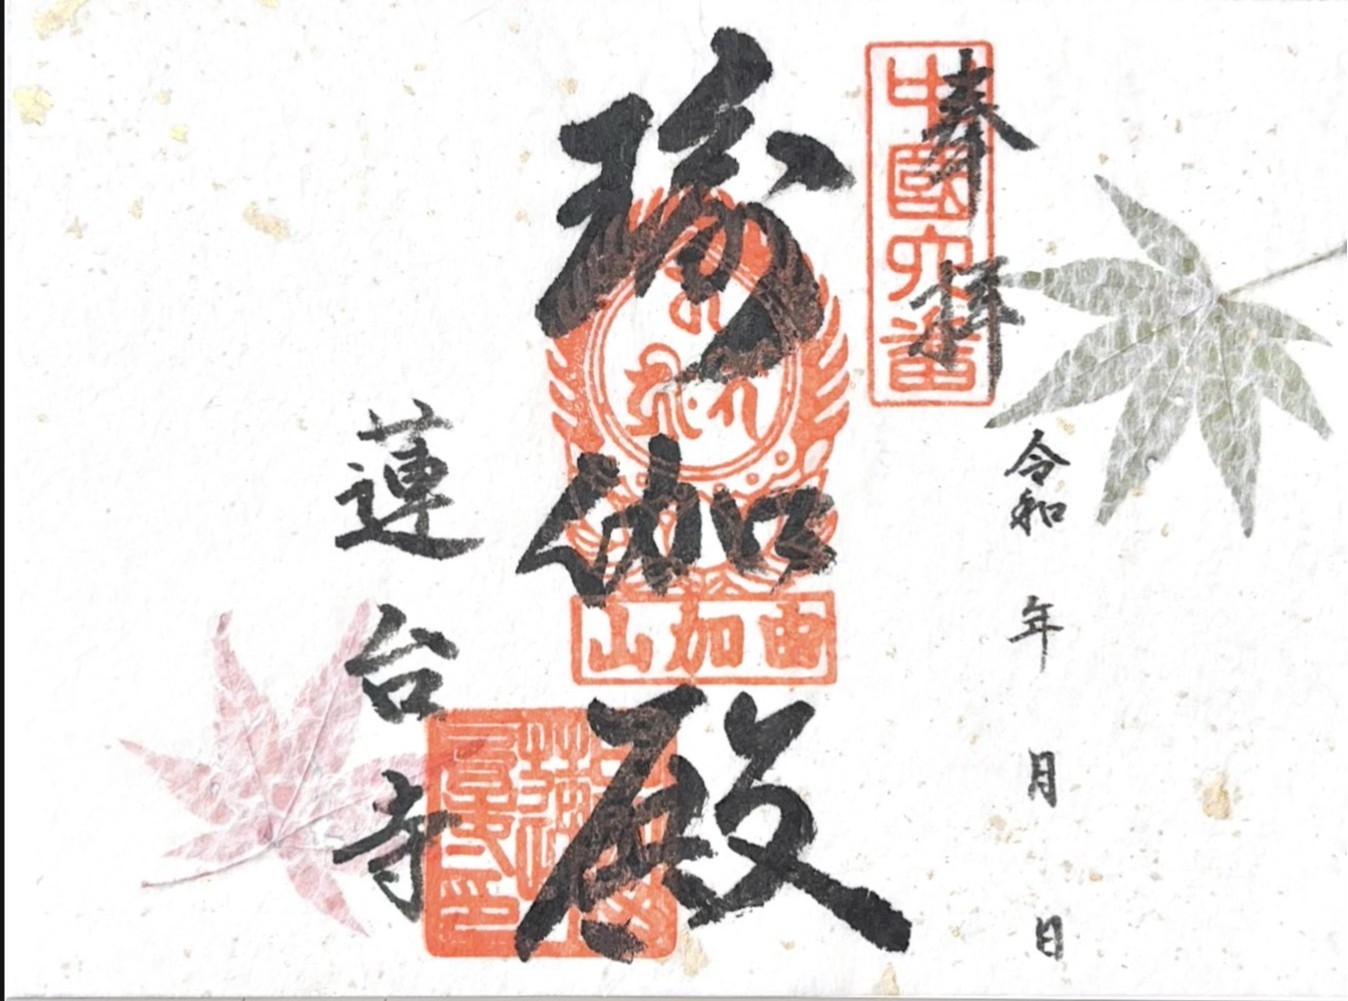 奉拝
中國六番
令和　年　月　日
瑜伽殿
由加山
蓮台寺